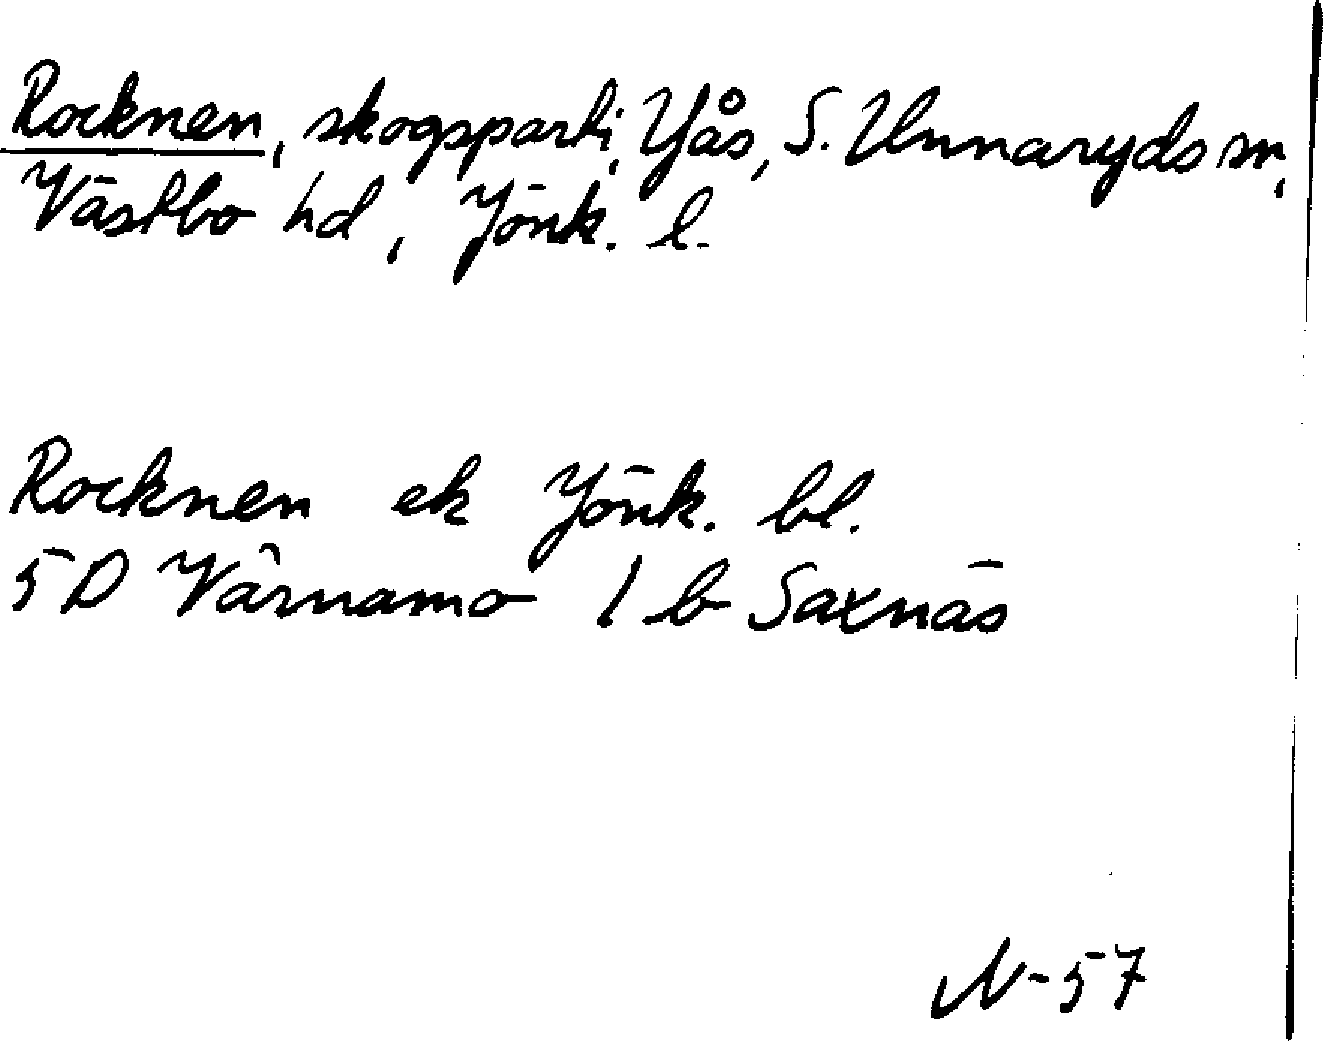 Rocknen, skogsparti, Yås, S. Unnaryds sn,
Västbo hd, Jönk. l.
Rocknen ek Jönk. bl.
5 D Värnamo 1 b Saxnäs
N-57